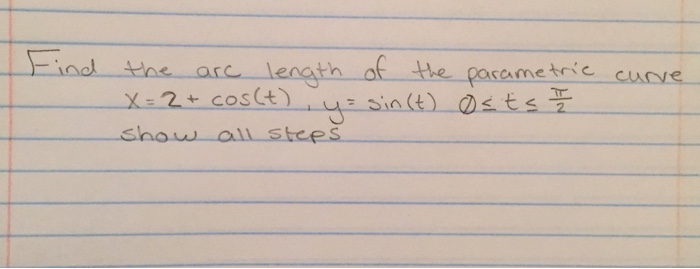 Find the arc length of the parametric curve
x = 2 + cos(t), y = sin(t) 0 ≤ t ≤ π/2
show all steps